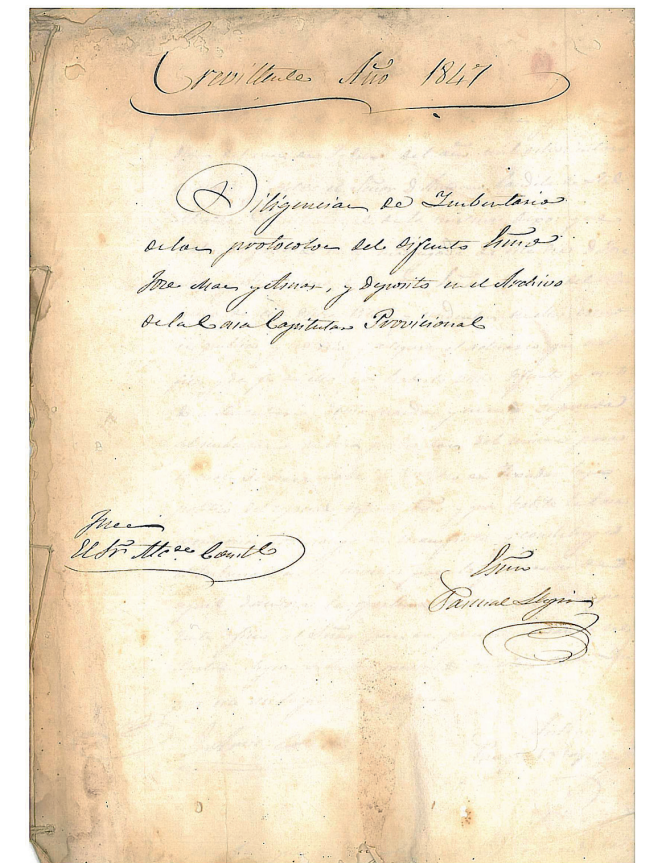 Crevillente Año 1847
Diligencias de Imbentario
delos protocolos del difunto Esno
Jose Mas y Asnar, y deposito en el Archivo
de la Casa Capitular Provicional
Juez
El Sr. Alce. Constl.
Esno
Pascual